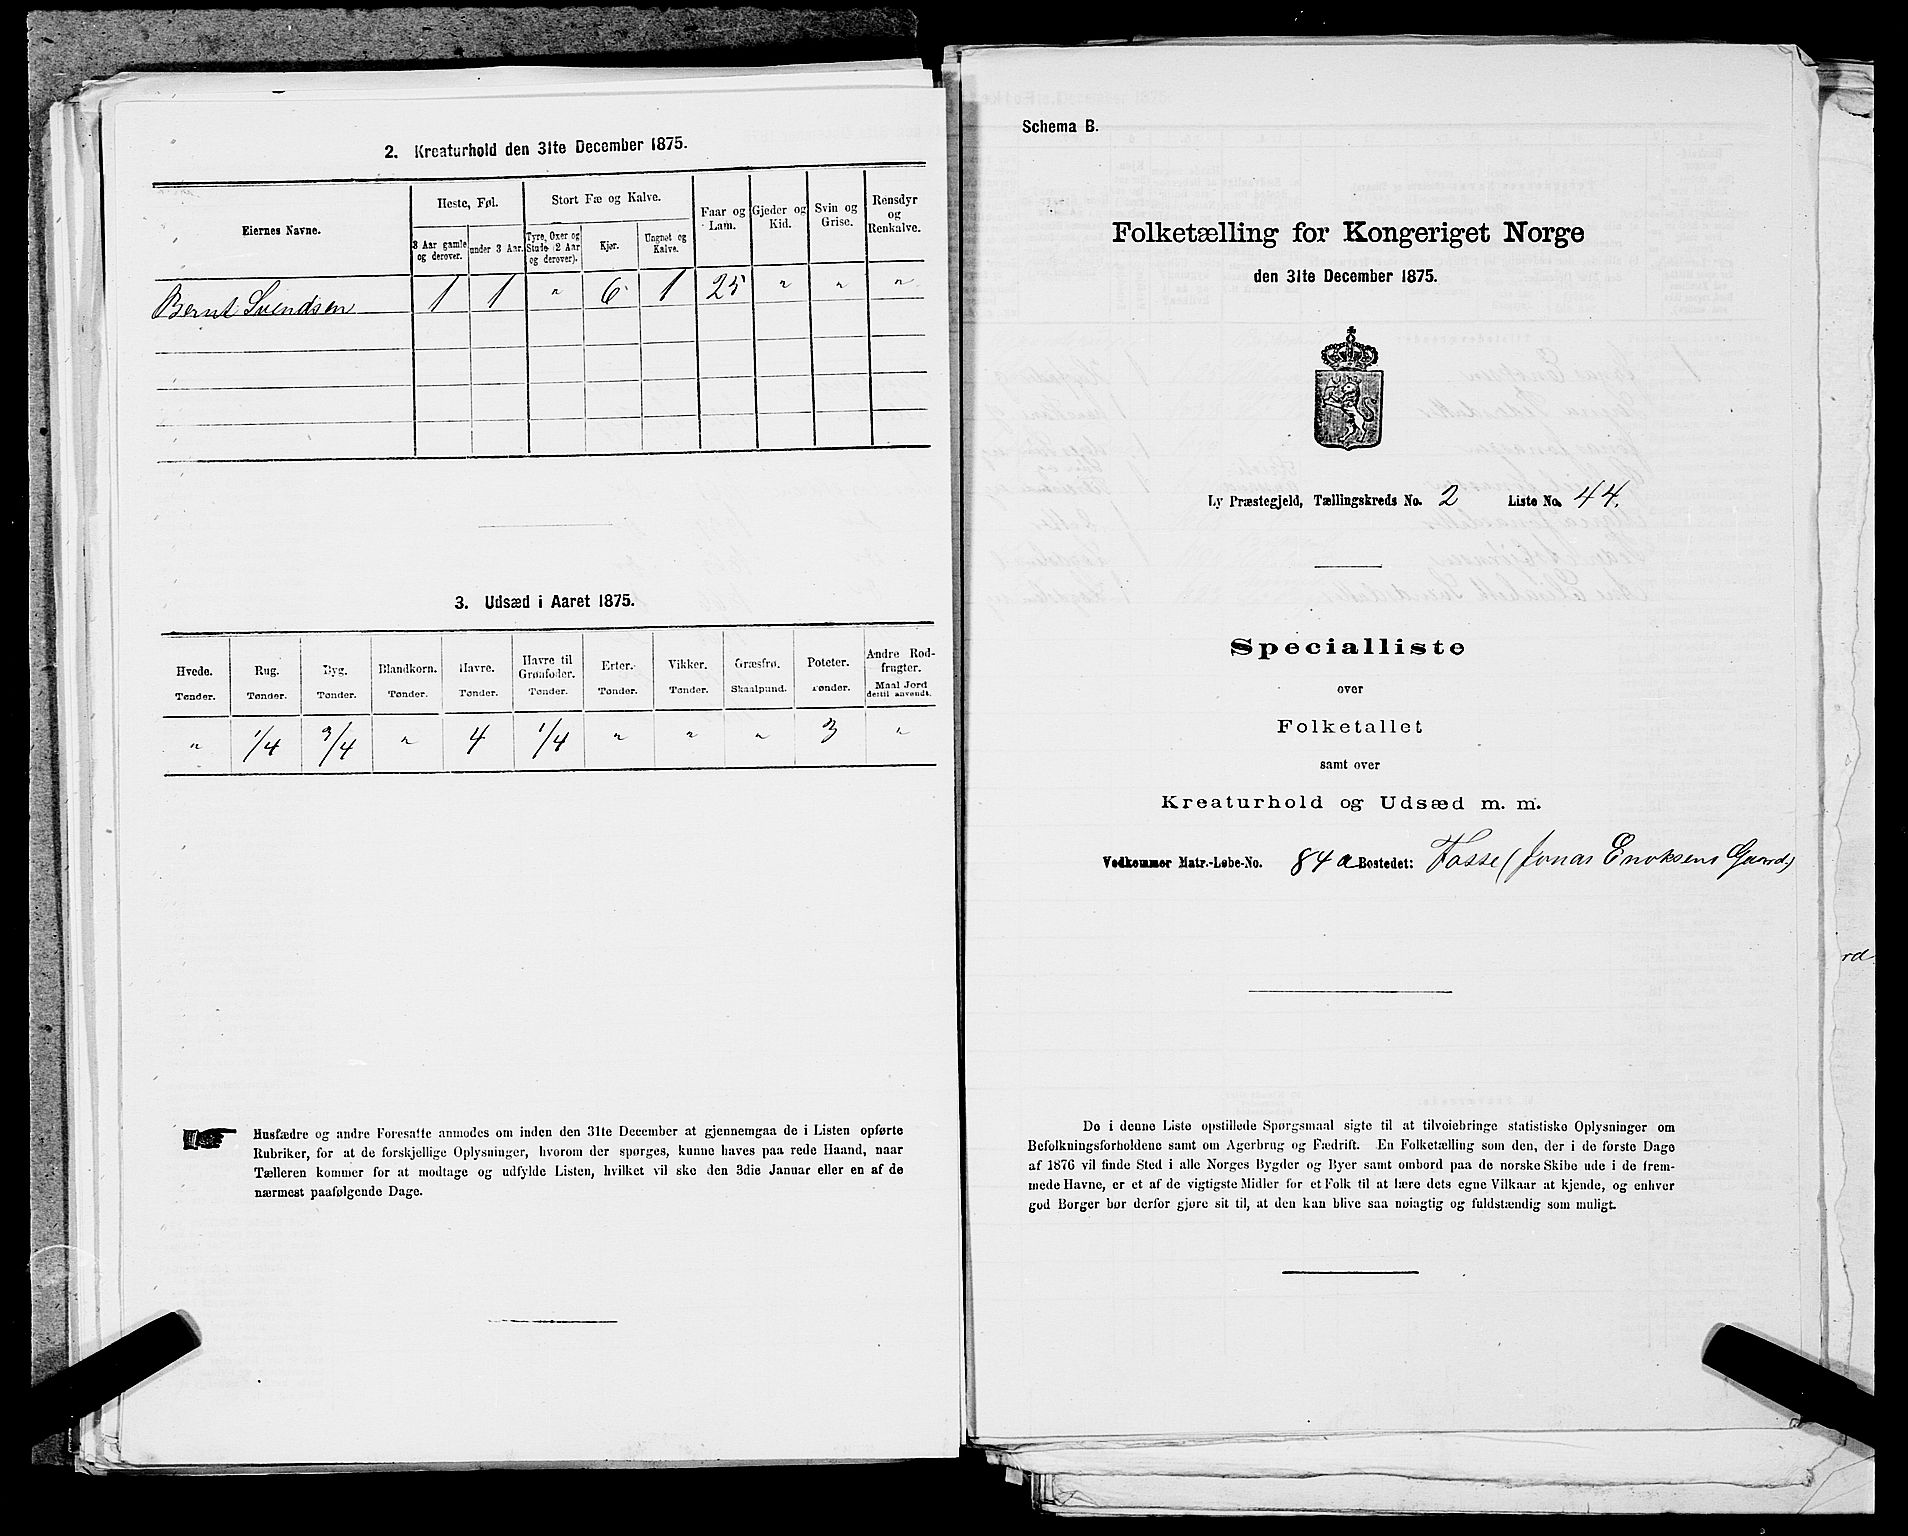 2. Kreaturhold den 31te December 1875.
Eiernes Navne.
Heste, Føl.
Stort Fæ og Kalve.
Faar og Lam.
Gjeder og Kid.
Svin og Grise.
Rensdyr og Renkalve.
3 Aar gamle og derover.
under 3 Aar.
Tyre, Oxer og Stude (2 Aar og derover).
Kjør.
Ungnøt og Kalve.
Bernt Svendsen 1 1 " 6 1 25 " " "
3. Udsæd i Aaret 1875.
Hvede. Rug. Byg. Blandkorn. Havre. Havre til Grønfoder. Erter. Vikker. Græsfrø. Poteter. Andre Rodfrugter.
Tønder. Tønder. Tønder. Tønder. Tønder. Tønder. Tønder. Tønder. Skaalpund. Tønder. Maal Jord dertil anvendt.
" 1/4 3/4 " 4 1/4 " " " 3 "
Husfædre og andre Foresatte anmodes om inden den 31te December at gjennemgaa de i Listen opførte
Rubriker, for at de forskjellige Oplysninger, hvorom der spørges, kunne haves paa rede Haand, naar
Tælleren kommer for at modtage og udfylde Listen, hvilket vil ske den 3die Januar eller en af de
nærmest paafølgende Dage.
Schema B.
Folketælling for Kongeriget Norge
den 31te December 1875.
Ly Præstegjeld, Tællingskreds No. 2 Liste No. 44.
Specialliste
over
Folketallet
samt over
Kreaturhold og Udsæd m. m.
Vedkommer Matr.-Løbe-No. 84a Bostedet: Fosse (Jonas Enoksens Gaard)
De i denne Liste opstillede Spørgsmaal sigte til at tilvoiebringe statistiske Oplysninger om
Befolkningsforholdene samt om Agerbrug og Fædrift. En Folketælling som den, der i de første Dage
af 1876 vil finde Sted i alle Norges Bygder og Byer samt ombord paa de norske Skibe ude i de frem-
mede Havne, er et af de vigtigste Midler for et Folk til at lære dets egne Vilkaar at kjende, og enhver
god Borger bør derfor gjøre sit til, at den kan blive saa nøiagtig og fuldstændig som muligt.
rd